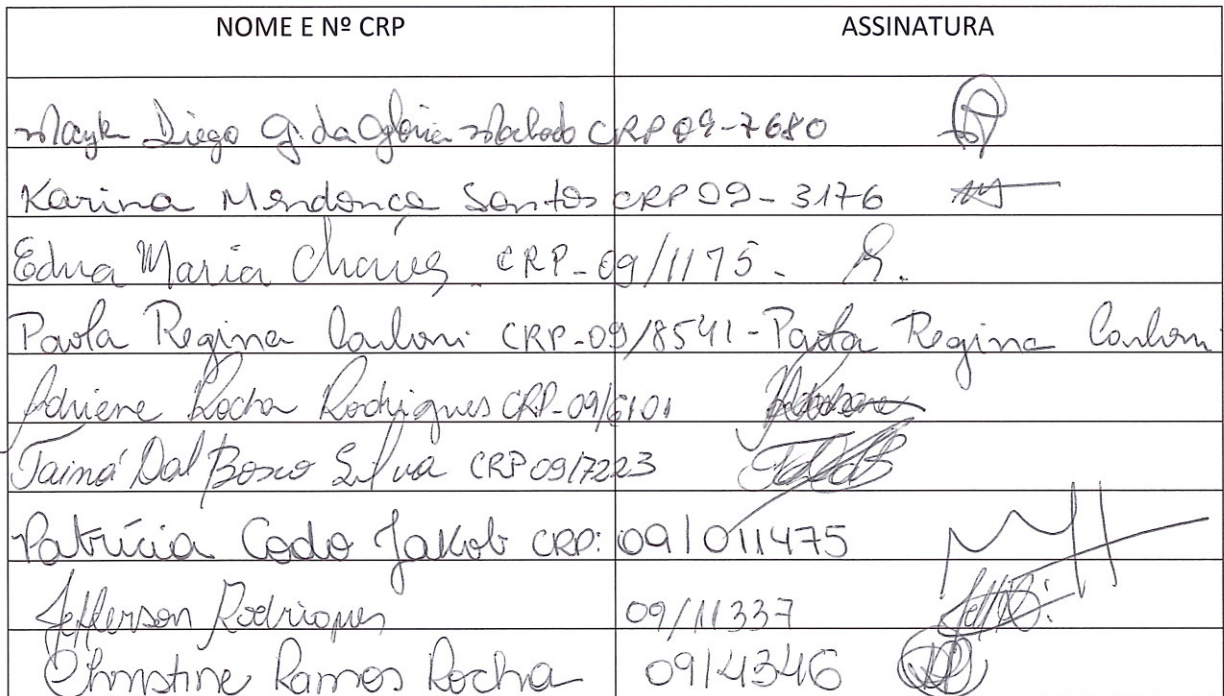 NOME E Nº CRP ASSINATURA
Mayk Diego G. da Glória Machado CRP 09-7680
Karina Mendonça Santos CRP 09-3176
Edna Maria Chaves CRP-09/1175.
Paola Regina Carloni CRP-09/8541-Paola Regina Carloni
Adriene Rocha Rodrigues CRP-09/6101
Tainá Dal Bosco Silva CRP 09/7223
Patrícia Godo Jakob CRP: 09/011475
Jefferson Rodrigues 09/11337
Christine Ramos Rocha 09/4346